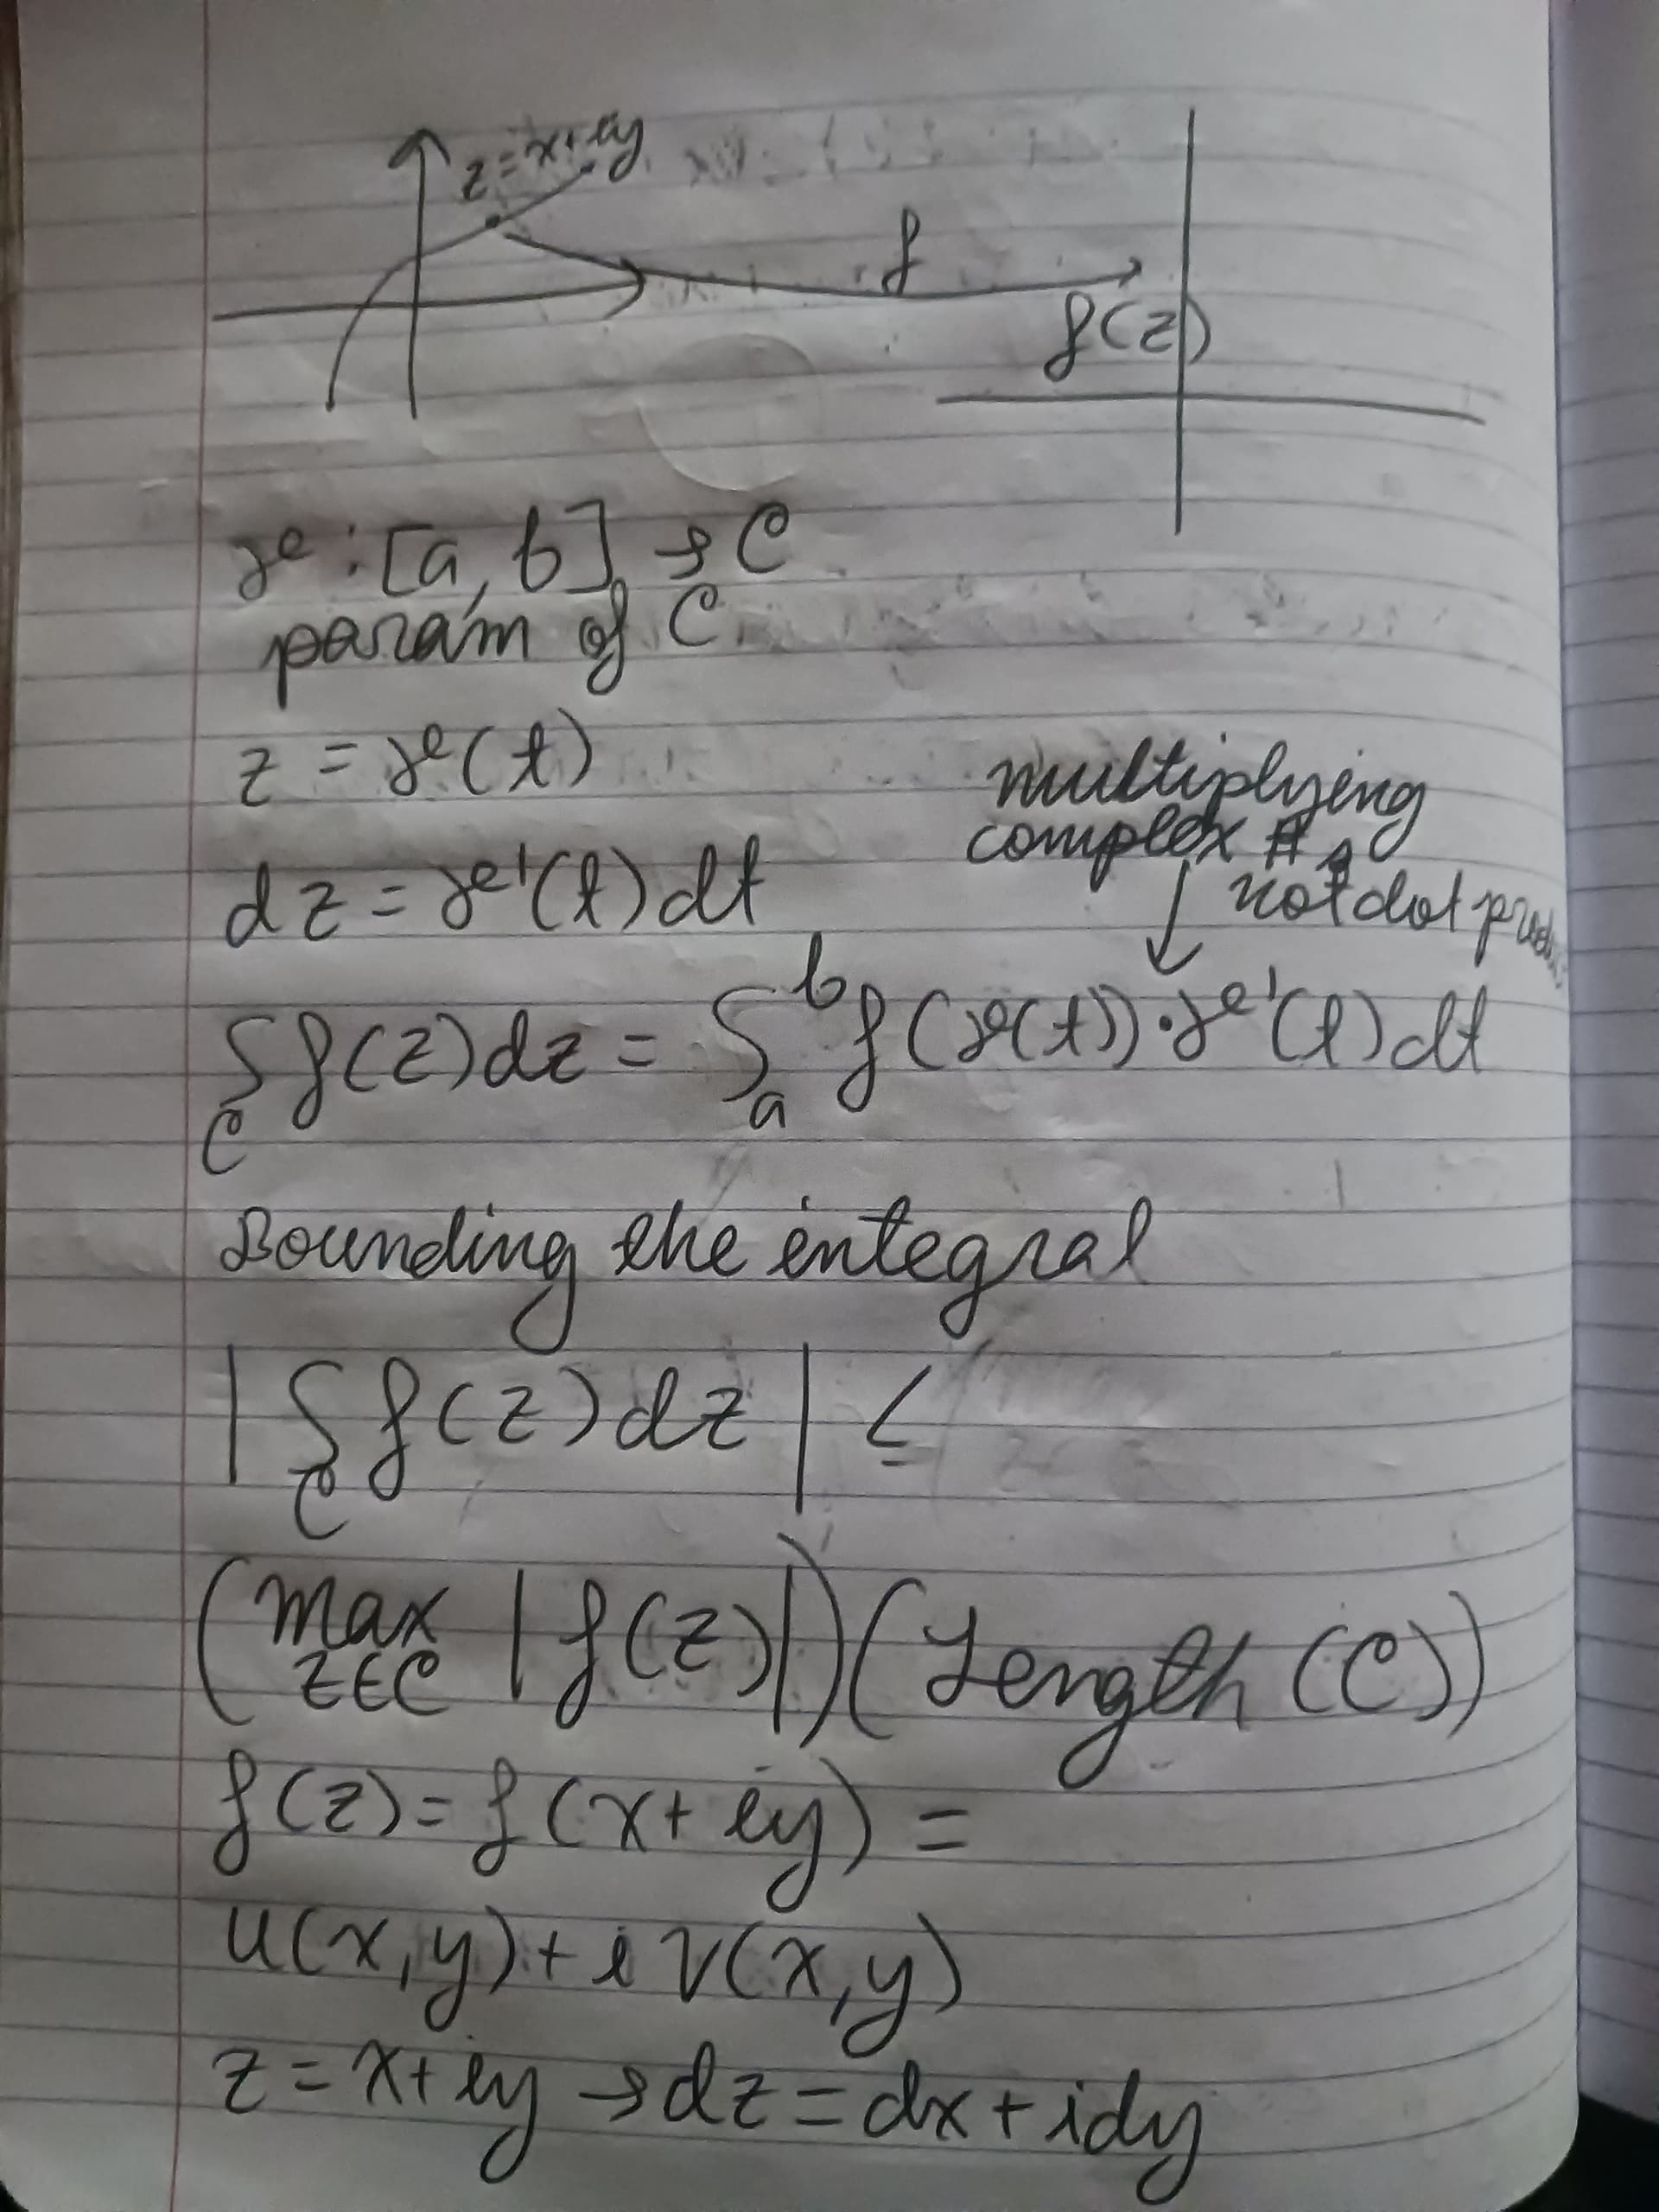 z=x+iy
f
f(z)
re : [a, b] → C
param of C
z = re(t)
multiplying
complex #,
not dot
dz = re'(t)dt
∫_C f(z)dz = ∫_a^b f(re(t))·re'(t)dt
Bounding the integral
|∫_C f(z)dz| ≤
(max_{z∈C} |f(z)|)(Length(C))
f(z) = f(x+iy) =
u(x,y)+i v(x,y)
z = x+iy → dz = dx + idy